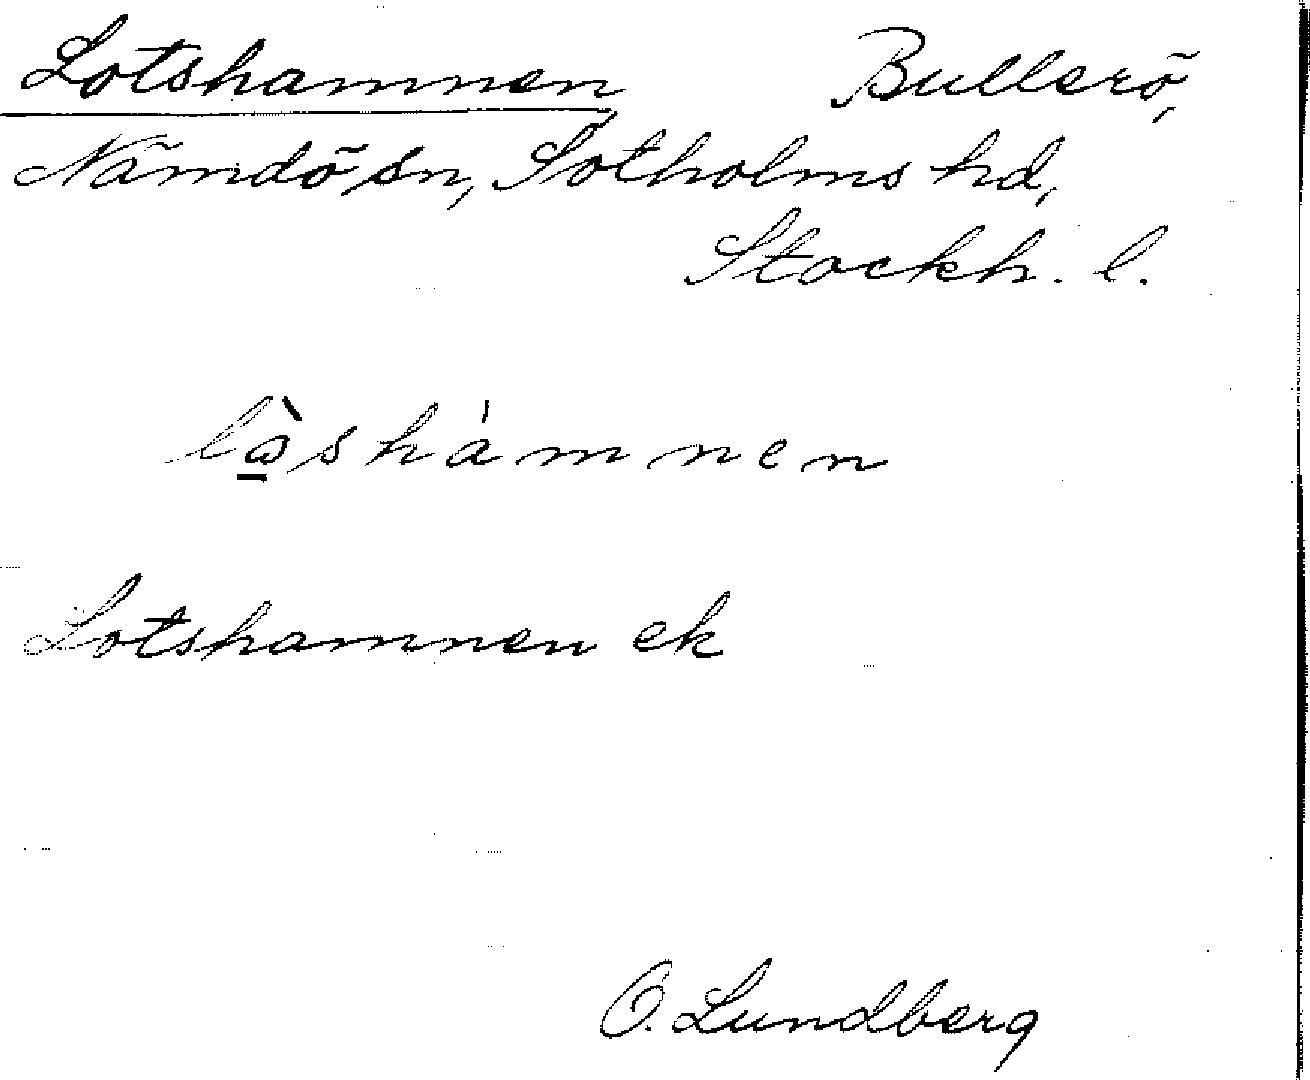 Lotshamnen Bullerö,
Nämdö sn, Sotholms hd,
Stockh. l.
lò̱shámnen
Lotshamnen ek
O. Lundberg